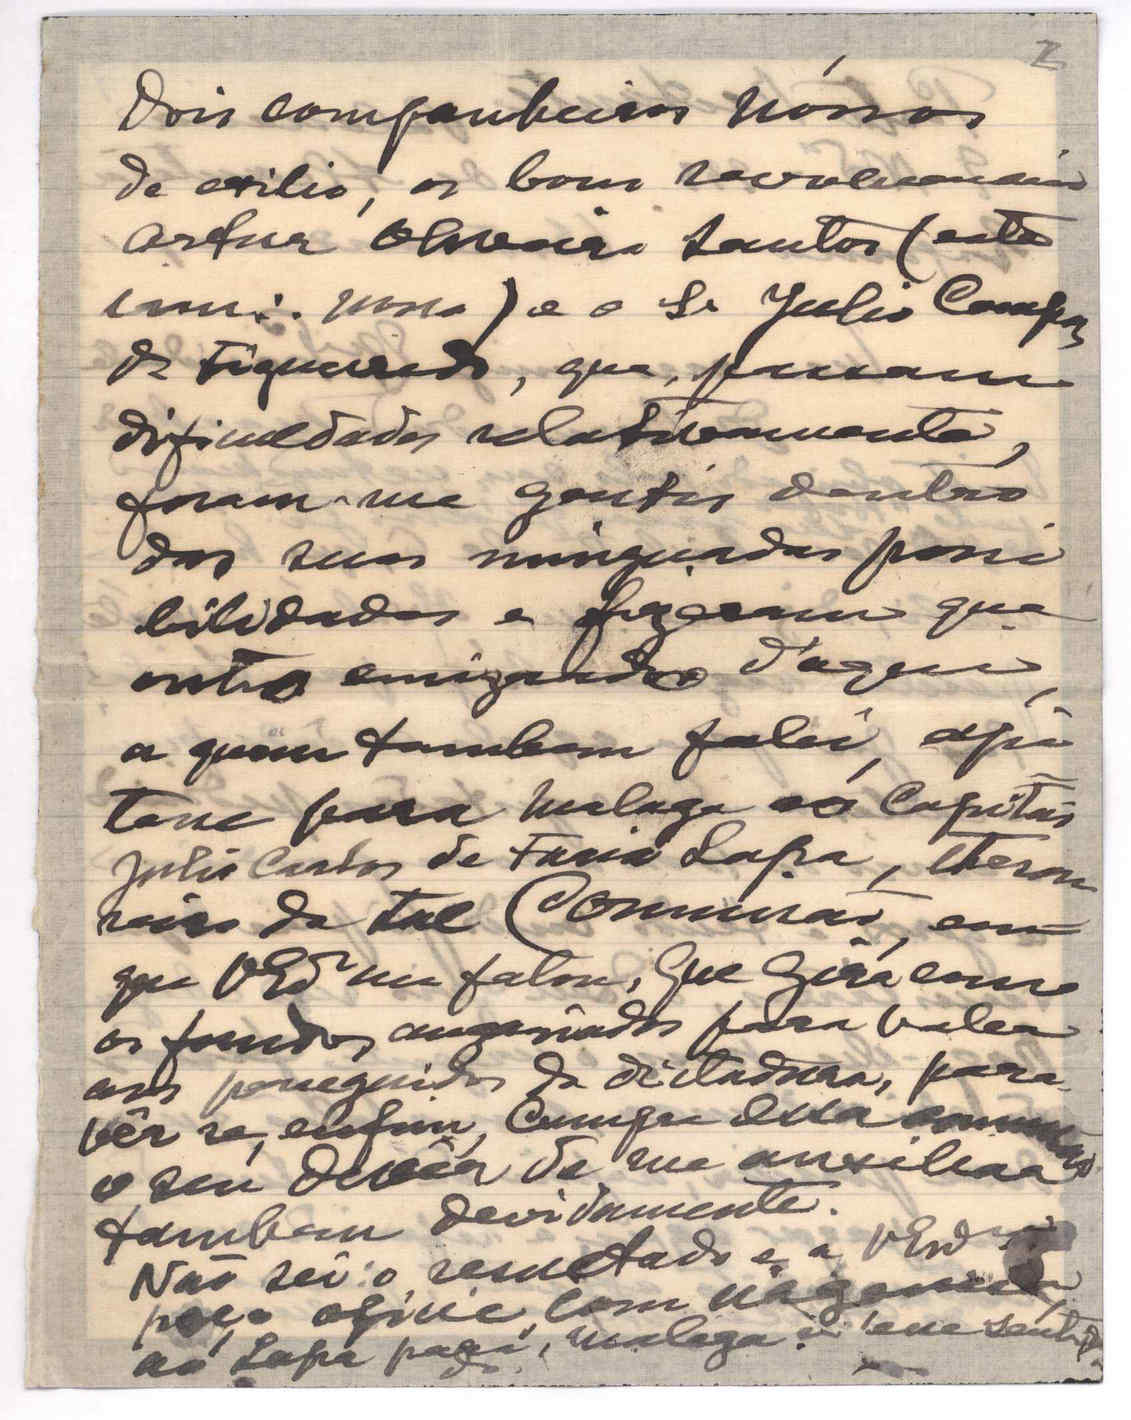 2
Dois companheiros nóssos
de exilio, os bons revolucionarios
Artur Oliveira Santos (este
irm∴ nosso) e o Sr Julio Campos
de Figueiredo, que, passam
dificuldades relativamente,
foram-me gentis dentro
das suas minguadas possi
bilidades e fizeram que
outro emigrado d'aqui,
a quem tambem falei, ofi
para Malaga ao Capitão
Julio Carlos de Faria Lapa, thesou
reiro da tal Comissão, em
que VExª me falou, que gira com
os fundos angariados para valer
aos perseguidos da dictadura, para
vêr se, enfim, cumpre essa comissão
o seu devêr de me auxiliar
tambem devidamente.
Não sei o resultado e a VExª
peço oficie, com urgencia,
ao Lapa para Malaga